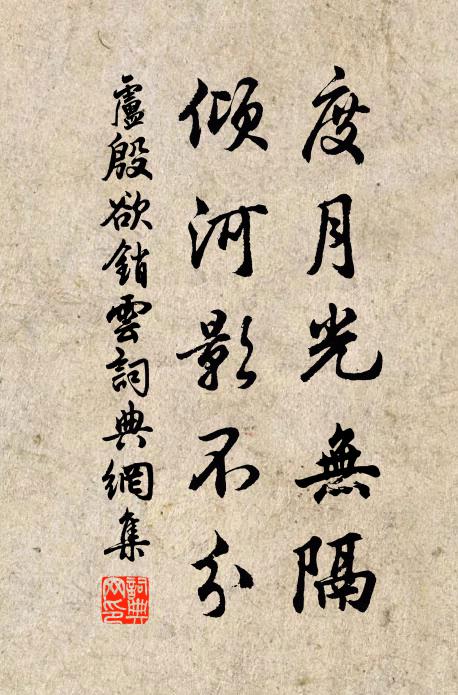 度月光無隔
傾河影不分
盧殷欲銷雲詞典網集
詞典
网印